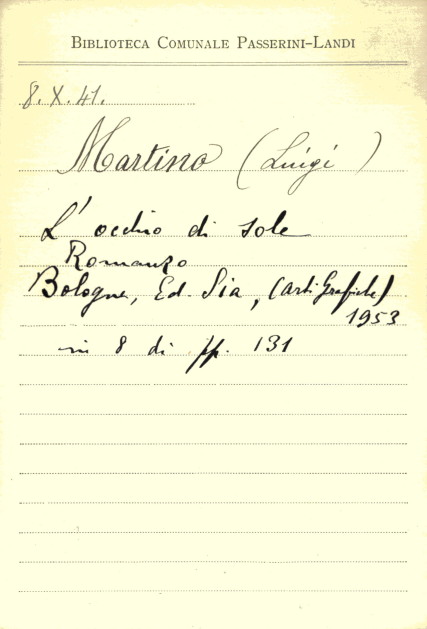 BIBLIOTECA COMUNALE PASSERINI-LANDI
8. X. 41.
Martino (Luigi)
L'occhio di sole
Romanzo
Bologna, Ed. Sia, (Arti Grafiche)
1953
in 8 di pp. 131